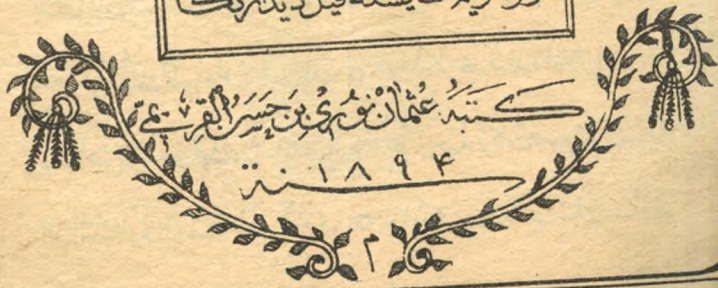 كَتَبَهُ عُثْمَانْ نُورِيْ بِنْ حَسَنُ الْقِرِيمِيّ
سنة ١٨٩٤
م